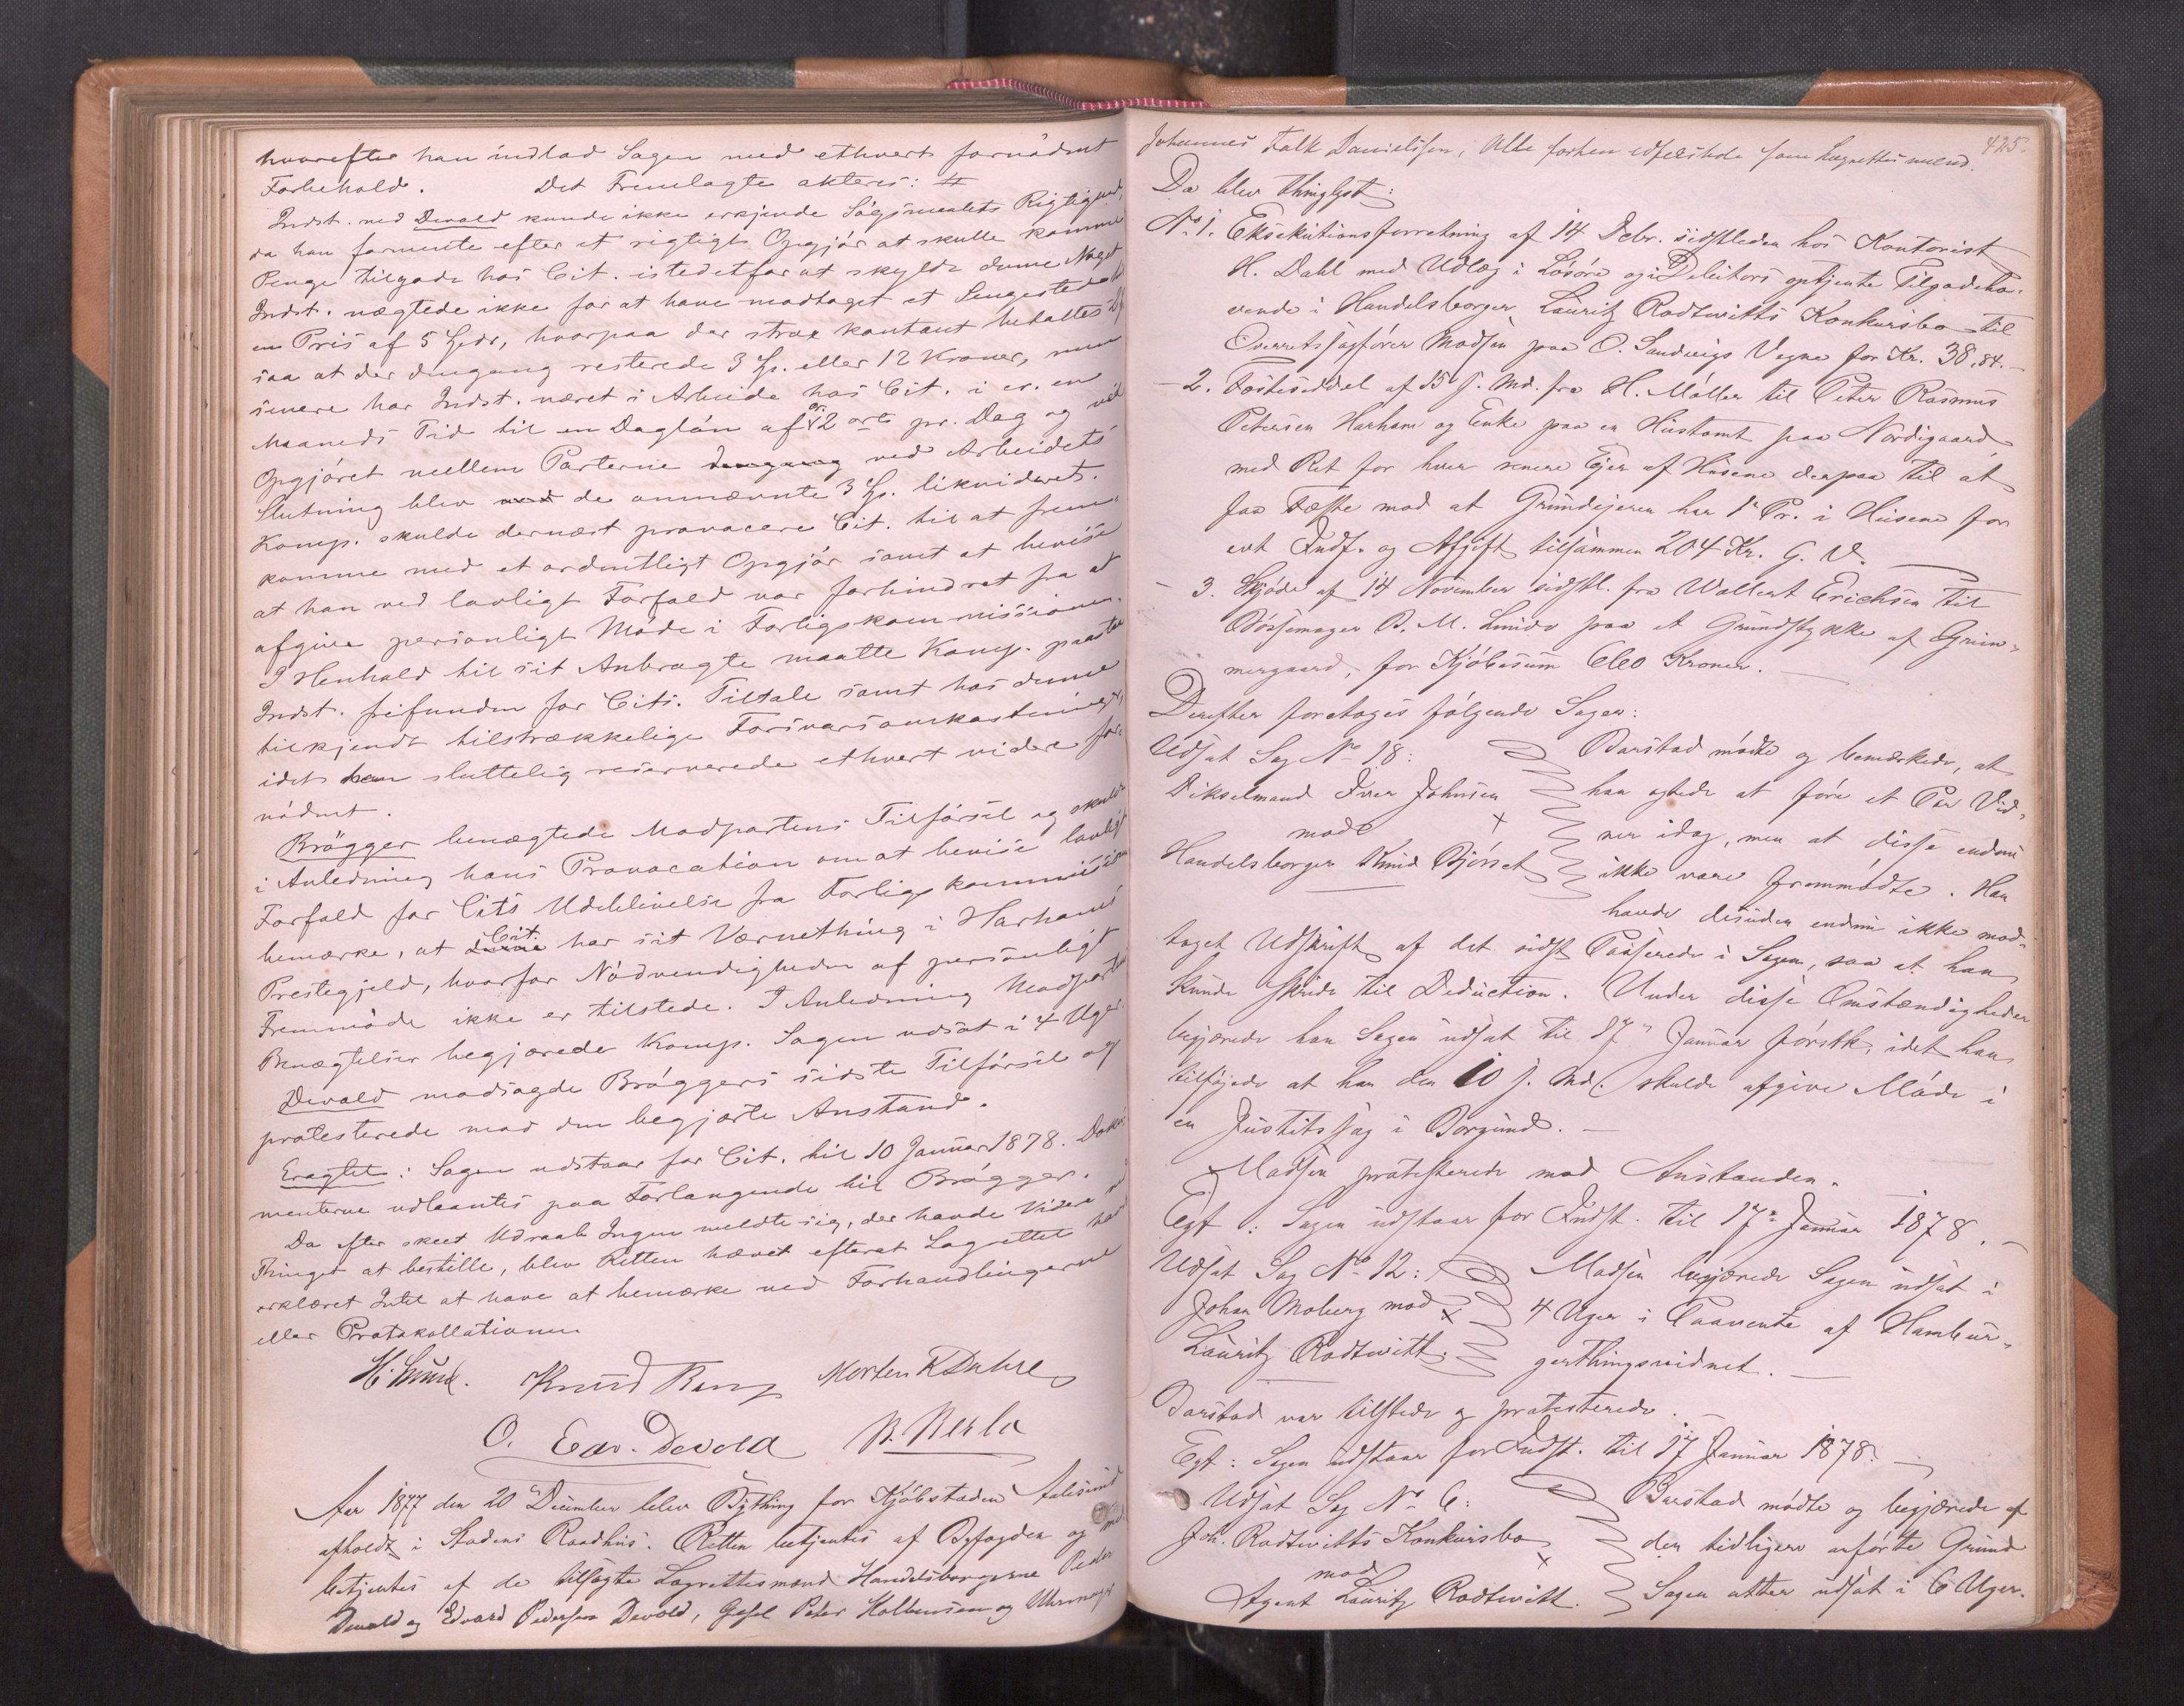 hvorefter han indlod Sagen med ethvert fornødent
Forbehold. Det Fremlagte akteres: #
Indst. ved Devold kunde ikke erkjende Søgsmaalets Rigtighed,
da han formente efter et rigtigt Opgjør at skulle komme
Penge tilgode hos Cit. istedetfor at skylde denne Noget
Indst. nægtede ikke for at have modtaget et Sengested
en Pris af 5 Spdr, hvorpaa der strax kontant betaltes 2
saa at der dengang resterede 3 Sp. eller 12 Kroner, men
senere har Indst. været i Arbeide hos Cit. i cr. en
Maaneds Tid til en Dagløn af 2 ort pr. Dag og ved
Opgjøret mellem Parterne dengang ved Arbeidets
Slutning blev de omnævnte 3 Sp. likvideret.
Komp. skulde dernæst provocere Cit. til at frem-
komme med et ordentligt Opgjør samt at bevise
at han ved lovligt Forfald var forhindret fra at
afgive personligt Møde i Forligskommissionen.
I Henhold til sit Anbragte maatte Komp. paastaa
Indst. frifunden for Cits. Tiltale samt hos denne
tilkjendt tilstrækkelige Forsvarsomkostninger,
idet han sluttelig reserverede ethvert videre for-
nødent.
Brøgger benægtede Modpartens Tilførsel og skulde
i Anledning hans Provocation om at bevise lovligt
Forfald for Cits Udeblivelse fra Forligskommissionen
bemærke, at denne Cit. har sit Værnething i Harhams
Prestegjeld, hvorfor Nødvendigheden af personligt
Fremmøde ikke er tilstede. I Anledning Modpartens
Benægtelser begjærede Komp. Sagen udsat i 4 Uger.
Devold modsagde Brøggers sidste Tilførsel og
protesterede mod den begjærte Anstand.
Eragtet: Sagen udstaar for Cit. til 10 Januar 1878. Doku-
menterne udlaantes paa Forlangende til Brøgger.
Da efter skeet Udraab Ingen meldte sig, der havde Videre ved
Thinget at bestille, blev Retten hævet efterat Lagrettet havde
erklæret Intet at have at bemærke ved Forhandlingerne
eller Protokollationen
Knud Morten K
O. Edv. Devold
Aar 1877 den 20 December blev Bything for Kjøbstaden Aalesund
afholdt i Stadens Raadhus. Retten betjentes af Byfogden og med-
betjentes af de tilsagte Lagrettesmænd Handelsborgerne Peder
Devold og Edvard Pedersen Devold, Gjæstg. Peter og Uhrmager
425.
Johannes Falk Danielsen, Alle forhen edfæstede som Lagrettesmænd.
Da blev thinglyst:
No 1. Eksekutionsforretning af 14 Debr. sidstleden hos Kontorist
H. Dahl med Udlæg i Løsøre og i Debitors optjente Tilgodeha-
vende i Handelsborger Lauritz Rodtwitts Konkursbo til
Overretssagfører Madsen paa O. Sandvigs Vegne for Kr. 38,84.-
- 2. Festeseddel af 15 f. Md. fra H. Møller til Peter Rasmus
Petersen Harham og Enke paa en Hustomt paa Nordigaard
med Ret for hver senere Ejer af Husene derpaa til at
faa Fæste mod at Grundejeren har 1e Pr. i Husene for
evt Indf. og Afgift tilsammen 204 Kr. G. V.
- 3. Skjøde af 14 November sidstl. fra Wollert Erichsen til
Bøssemager B. M. paa et Grundstykke af Grim-
mergaard, for Kjøbesum Kroner.
Derefter foretoges følgende Sager:
Udsat Sag No 18:
Dikselmand Iver Johnsen
mod
Handelsborger Knud Bjørset
Barstad mødte og bemærkede, at
han agtede at føre et Par Vid-
ner idag, men at disse endnu
ikke vare fremmødte. Han
havde desuden endnu ikke mod-
taget Udskrift af det sidst Passerede i Sagen, saa at han
kunde skride til Deduction. Under disse Omstændigheder
begjærede han Sagen udsat til 17de Januar førstk. idet han
tilføjede at han den 10 f. Md. skulde afgive Møde i
en Justitssag i Borgund.-
Madsen protesterede mod Anstanden.
Egt: Sagen udstaar for Indst. til 17de Januar 1878.-
Udsat Sag No 12:
Johan Moberg mod
Lauritz Rodtwitt.
Madsen begjærede Sagen udsat i
4 Uger i Paavente af Hambur-
gerthingsvidnet.-
Barstad var tilstede og protesterede.-
Egt: Sagen udstaar for Indst. til 17 Januar 1878.-
Udsat Sag No 6:
Joh. Rodtwitts Konkursbo
mod
Agent Lauritz Rodtwitt.
Barstad mødte og begjærede af
den tidligere anførte Grund
Sagen atter udsat i 6 Uger.